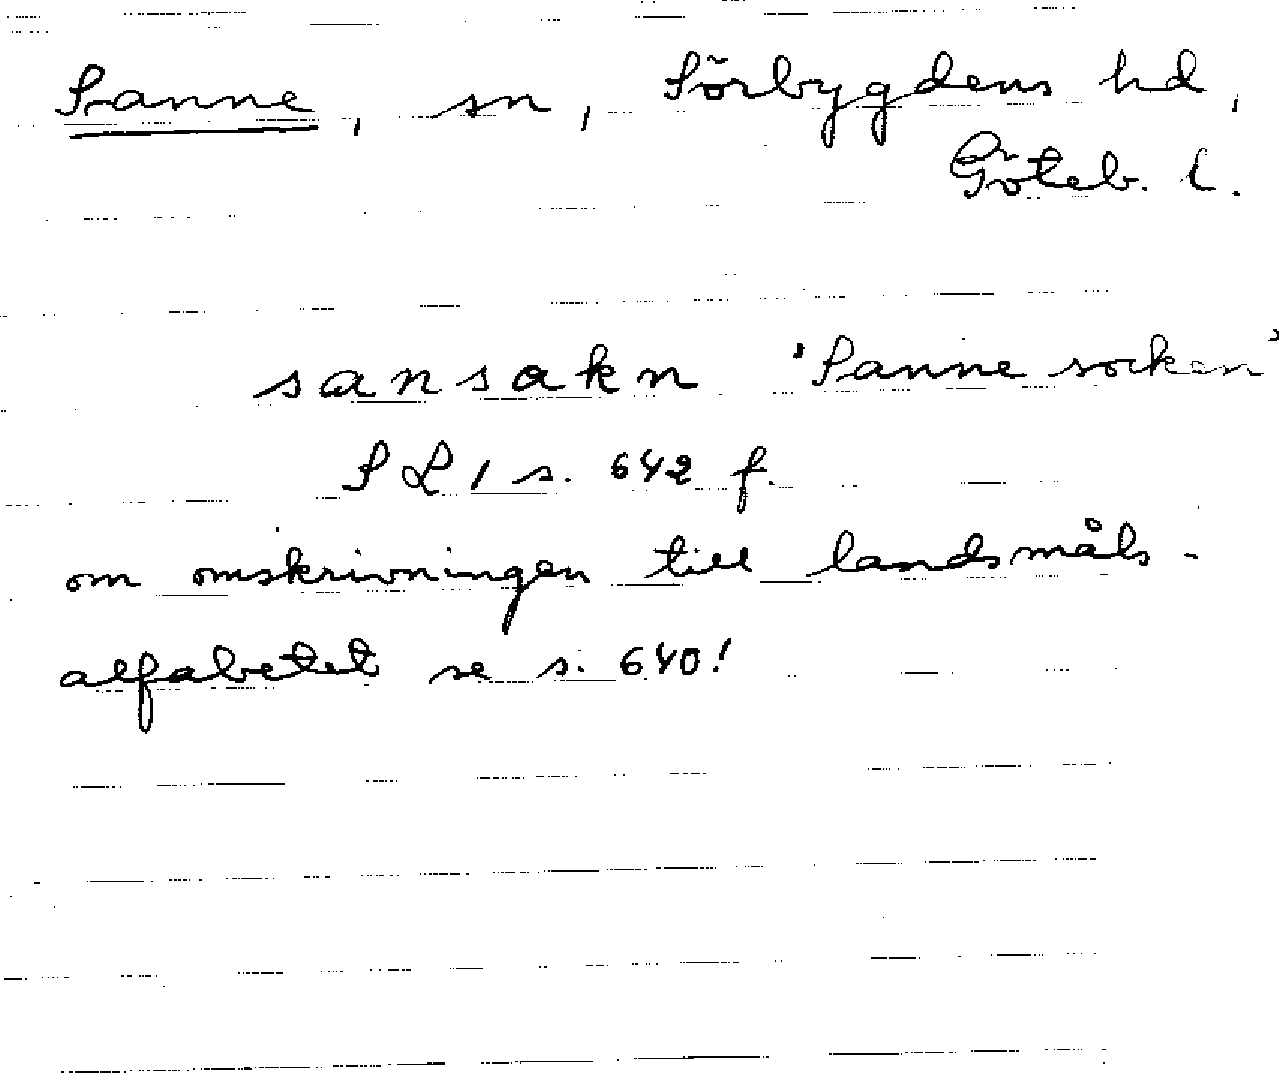 Sanne, sn, Sörbygdens hd,
Göteb. l.
sansokn 'Sanne socken'
SL 1 s. 642 f.
om omskrivningen till landsmåls-
alfabetet se s. 640!